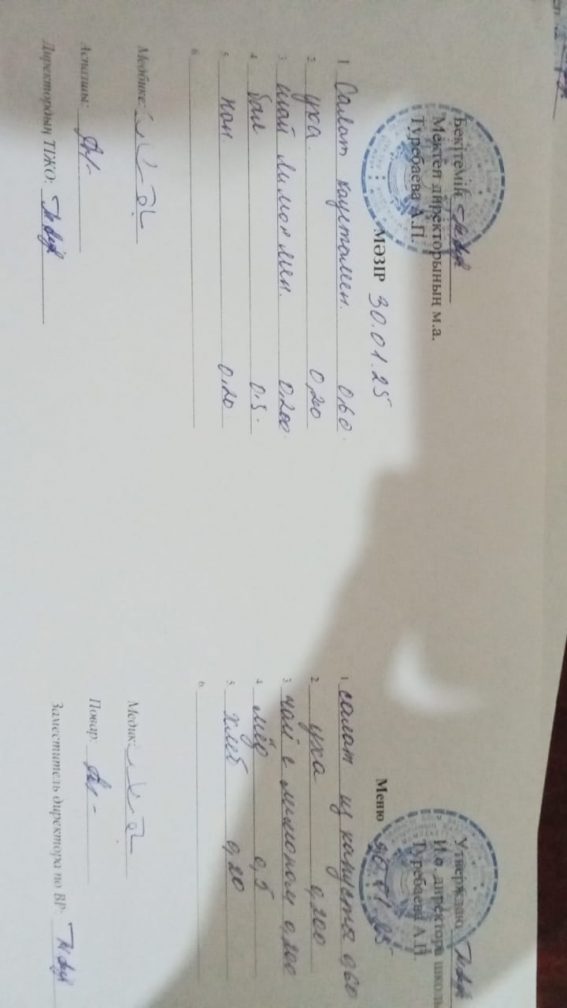 Бекітемін
Мектеп директорының м.а.
Туребаева А.П.
МӘЗІР 30.01.25
1 Салат капустамен. 0,60.
2. уха. 0,200
3. шай лимонмен. 0,200
4. бал 0.5.
5. нан. 0,20
6.
Медбике:
Аспазшы:
Директордың ТІЖО:
Утверждаю
И.о. директора школы
Туребаева А.П.
Меню 30.01.25
1 салат из капусты 0,60
2. уха 0,200
3 чай с лимоном 0,200
4. мёд 0,5
5. хлеб 0,20
6.
Медик:
Повар
Заместитель директора по ВР: